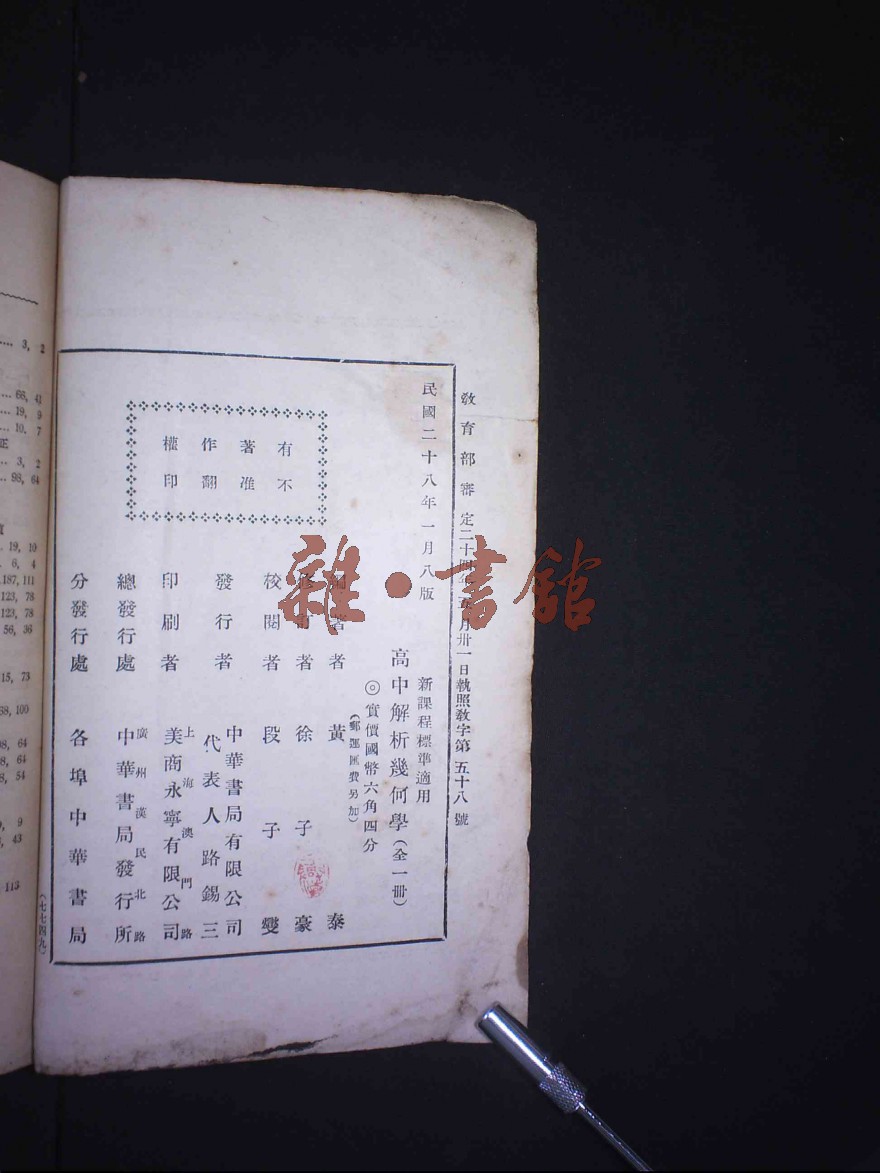 教育部審定二十四年五月卅一日執照教字第五十八號
民國二十八年一月八版
新課程標準適用
高中解析幾何學(全一册)
◎實價國幣六角四分
(郵運匯費另加)
編著者 黃泰
修訂者 徐子豪
校閱者 段子燮
發行者 中華書局有限公司
代表人路錫三
印刷者 上海澳門路
美商永寧有限公司
總發行處 廣州漢民北路
中華書局發行所
分發行處 各埠中華書局
有不
著准
作翻
權印
(七七四九)
雜·書館
3, 2
68, 43
19, 9
10. 7
正
3, 2
98, 64
19, 10
6, 4
187, 111
123, 78
123, 78
56, 36
15, 73
68, 100
98, 64
68, 64
8, 54
9
43
113